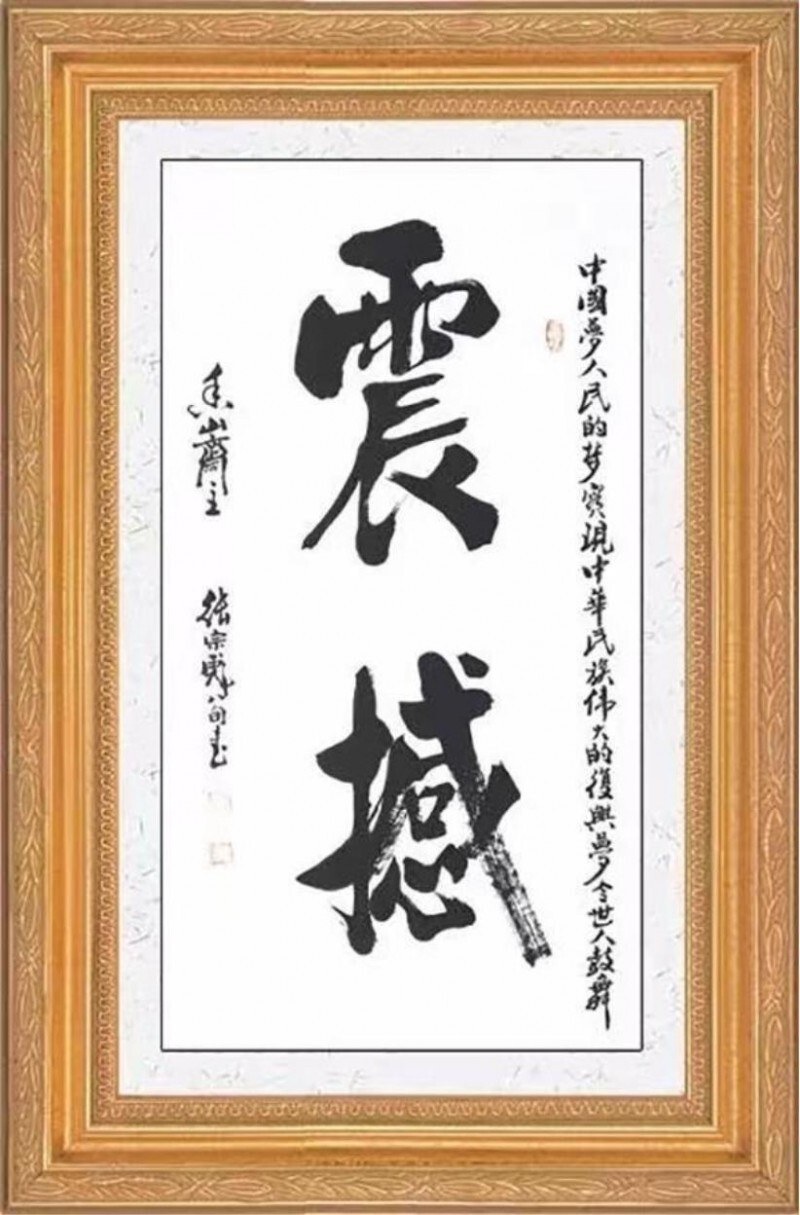 中國夢人民的梦實現中華民族伟大的復興夢令世人鼓舞
震撼
香山齋主 張宗 八旬書